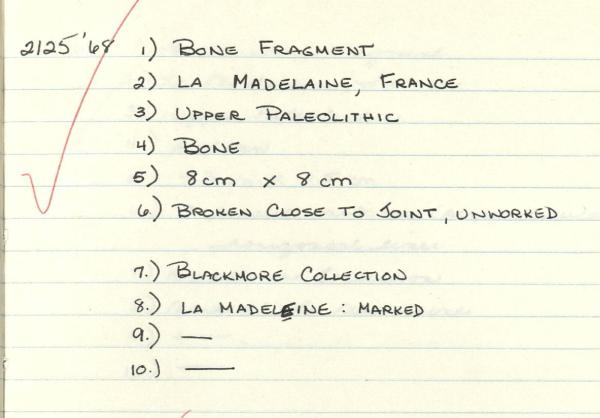 2125'68 1) BONE FRAGMENT
2) LA MADELAINE, FRANCE
3) UPPER PALEOLITHIC
4) BONE
5) 8cm x 8cm
6.) BROKEN CLOSE TO JOINT, UNWORKED
7.) BLACKMORE COLLECTION
8.) LA MADELEINE : MARKED
9.) —
10.) —